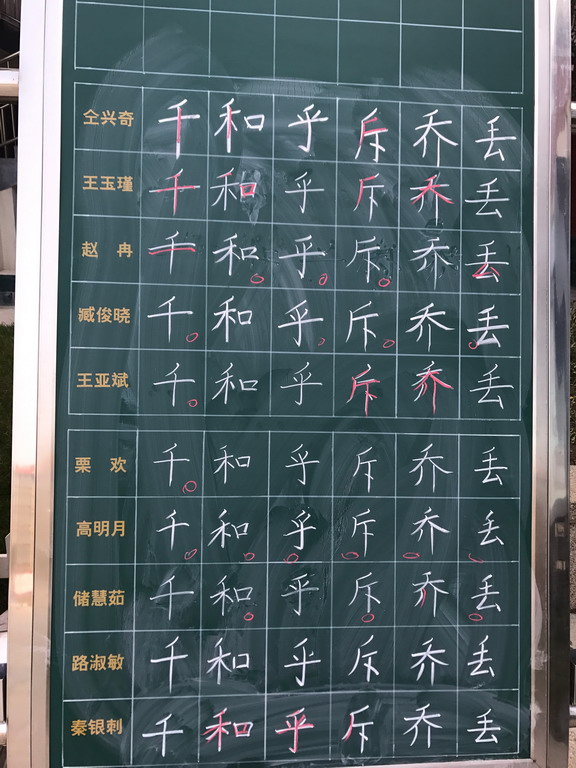 仝兴奇 千 和 乎 斥 乔 丢
王玉瑾 千 和 乎 斥 乔 丢
赵冉 千 和 乎 斥 乔 丢
臧俊晓 千 和 乎 斥 乔 丢
王亚斌 千 和 乎 斥 乔 丢
栗欢 千 和 乎 斥 乔 丢
高明月 千 和 乎 斥 乔 丢
储慧茹 千 和 乎 斥 乔 丢
路淑敏 千 和 乎 斥 乔 丢
秦银刺 千 和 乎 斥 乔 丢